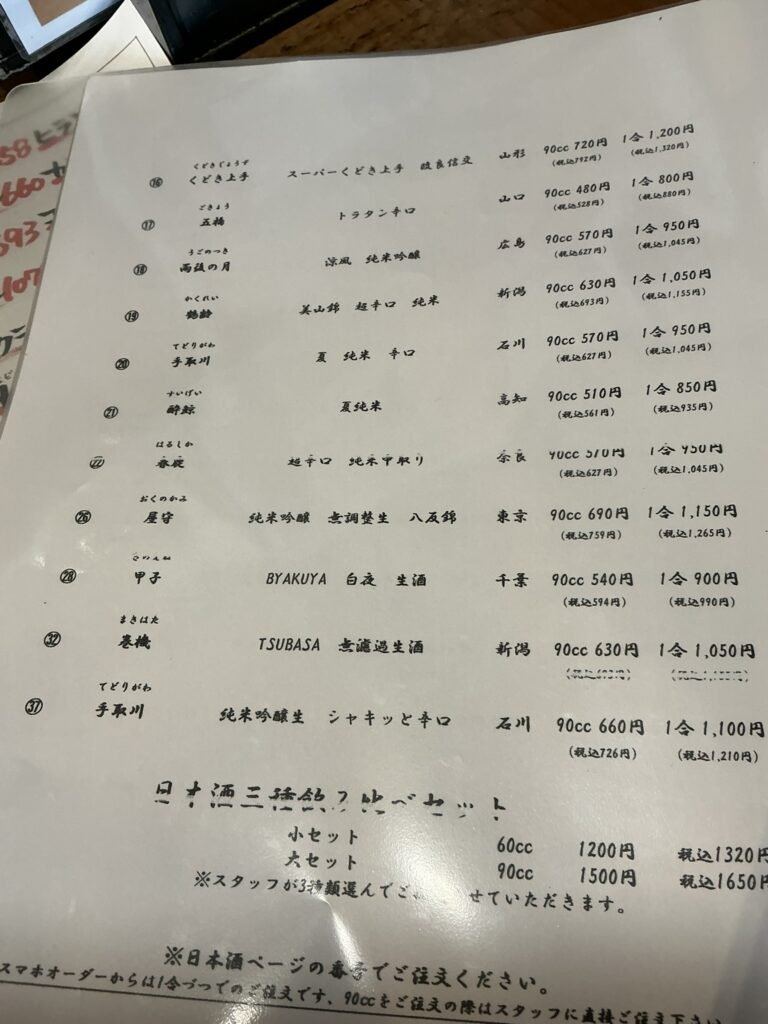 58 ヒラ
660
593
407
くどきじょうず
⑯ くどき上手 スーパーくどき上手 改良信交 山形 90cc 720円 1合 1,200円
(税込792円) (税込1,320円)
ごきょう
⑰ 五橋 トラタン辛口 山口 90cc 480円 1合 800円
(税込528円) (税込880円)
うごのつき
⑱ 雨後の月 涼風 純米吟醸 広島 90cc 570円 1合 950円
(税込627円) (税込1,045円)
かくれい
⑲ 鶴齢 美山錦 超辛口 純米 新潟 90cc 630円 1合 1,050円
(税込693円) (税込1,155円)
てどりがわ
⑳ 手取川 夏 純米 辛口 石川 90cc 570円 1合 950円
(税込627円) (税込1,045円)
すいげい
㉑ 酔鯨 夏純米 高知 90cc 510円 1合 850円
(税込561円) (税込935円)
はるしか
㉒ 春鹿 超辛口 純米中取り 奈良 90cc 570円 1合 950円
(税込627円) (税込1,045円)
おくのかみ
㉖ 屋守 純米吟醸 無調整生 八反錦 東京 90cc 690円 1合 1,150円
(税込759円) (税込1,265円)
きのえね
㉘ 甲子 BYAKUYA 白夜 生酒 千葉 90cc 540円 1合 900円
(税込594円) (税込990円)
まきはた
㉜ 巻機 TSUBASA 無濾過生酒 新潟 90cc 630円 1合 1,050円
(税込693円) (税込1,155円)
てどりがわ
㊲ 手取川 純米吟醸生 シャキッと辛口 石川 90cc 660円 1合 1,100円
(税込726円) (税込1,210円)
日本酒三種飲み比べセット
小セット 60cc 1200円 税込1320円
大セット 90cc 1500円 税込1650円
※スタッフが3種類選んでご せていただきます。
※日本酒ページの番号でご注文ください。
スマホオーダーからは1合づつでのご注文です、90ccをご注文の際はスタッフに直接ご注文下さい